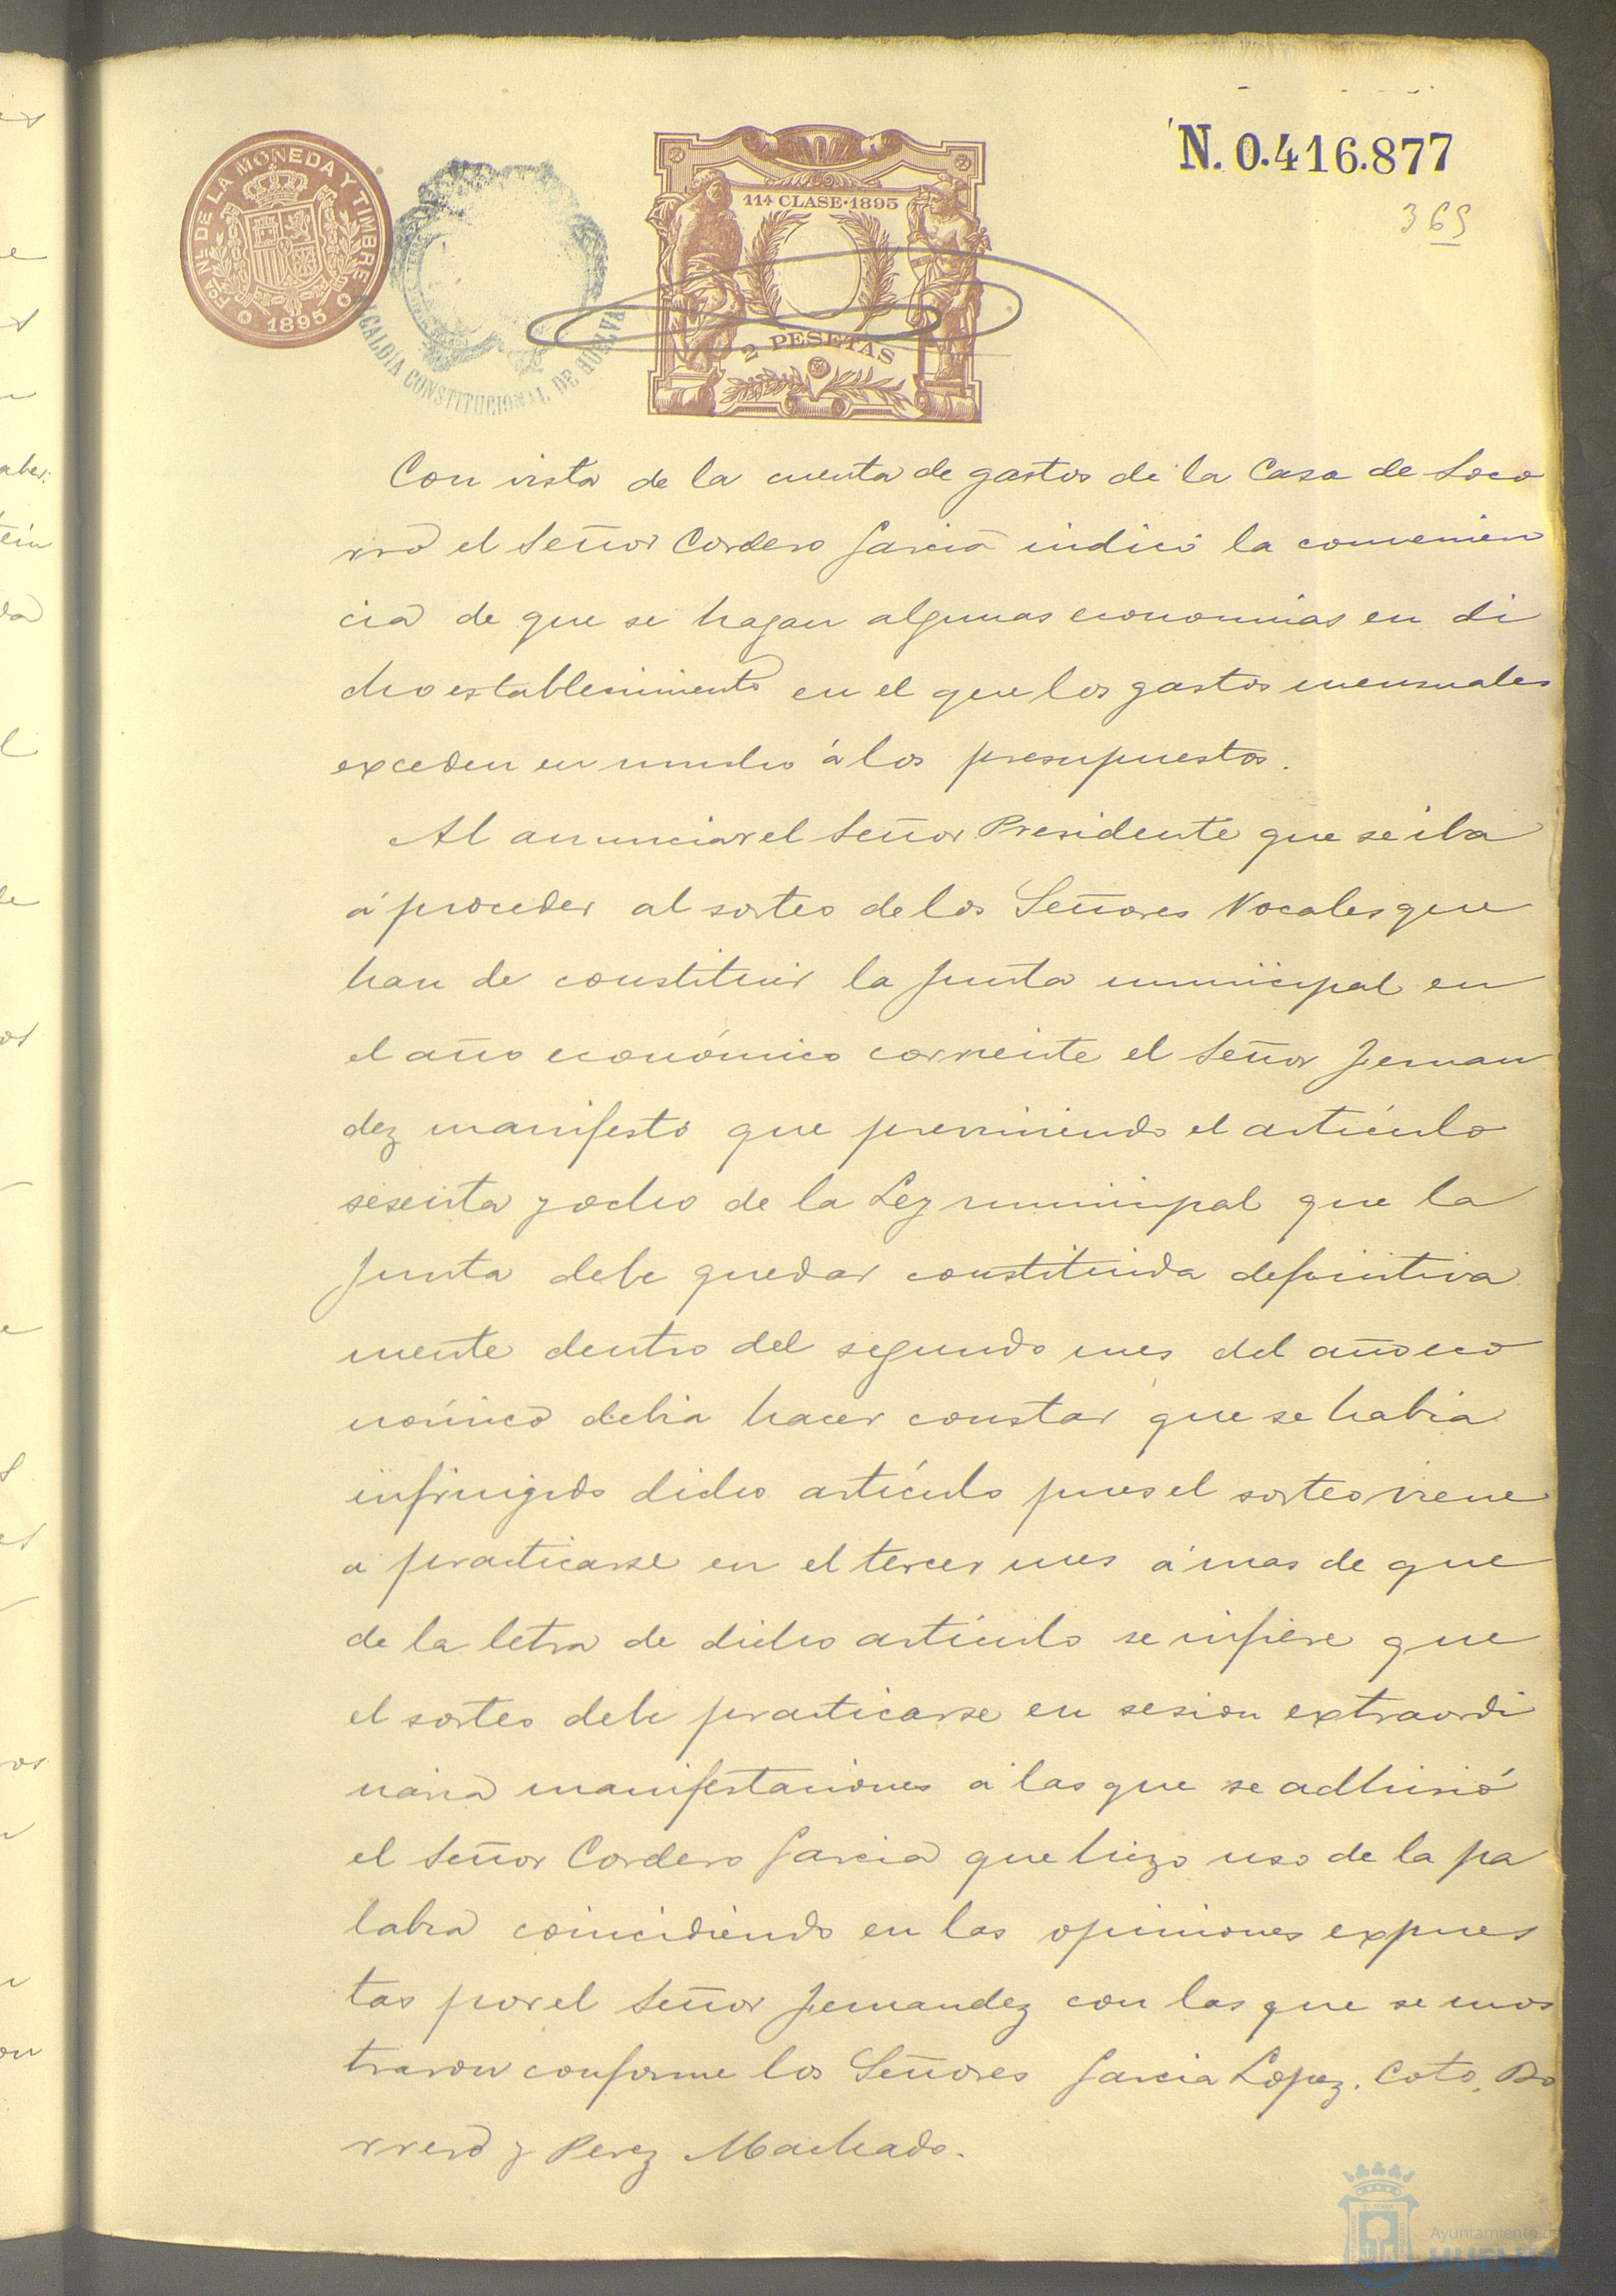 N. 0.416.877
369
FCA NL DE LA MONEDA Y TIMBRE
1895
ALCALDÍA CONSTITUCIONAL DE HUELVA
11ª CLASE·1895
2 PESETAS
Con vista de la cuenta de gastos de la Casa de Soco
rro el Señor Cordero Garcia indicó la convenien
cia de que se hagan algunas economias en di
cho establecimiento en el que los gastos mensuales
exceden en mucho á los presupuestos.
Al anunciar el Señor Presidente que se iba
á proceder al sorteo de los Señores Vocales que
han de constituir la Junta municipal en
el año económico corriente el Señor Fernan
dez manifestó que previniendo el artículo
sesenta y ocho de la Ley municipal que la
Junta debe quedar constituida definitiva
mente dentro del segundo mes del año eco
nómico debia hacer constar que se habia
infringido dicho artículo pues el sorteo viene
a practicarse en el tercer mes á mas de que
de la letra de dicho artículo se infiere que
el sorteo debe practicarse en sesion extraordi
naria manifestaciones á las que se adhirió
el Señor Cordero Garcia que hizo uso de la pa
labra coincidiendo en las opiniones expues
tas por el Señor Fernandez con las que se mos
traron conforme los Señores Garcia Lopez, Coto, Bo
rrero y Perez Machado.
Ayuntamiento de
HUELVA